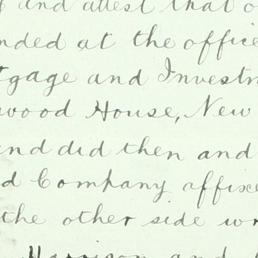 and attest that
nded at the office
tgage and Investm
wood House, New
and did then and
d Company affixe
the other side wr
Harrison and